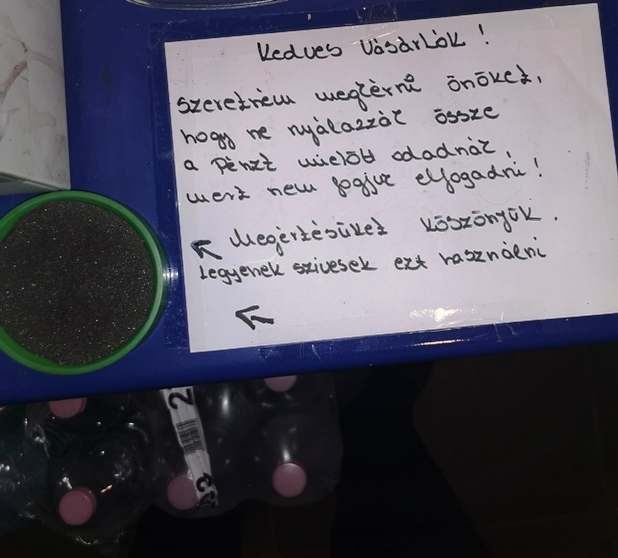 Kedves Vásárlók !
Szeretném megkérni önöket,
hogy ne nyálazzák össze
a Pénzt mielőtt odadnák,
mert nem fogjuk elfogadni !
Megértésüket köszönjük .
Legyenek szivesek ezt használni